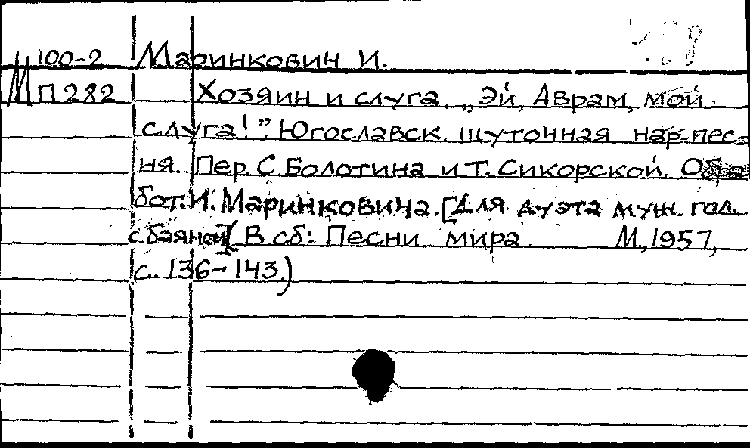 100-2 Маринкович И.
М П282 Хозяин и слуга. „Эй, Аврам, мой
слуга!” Югославск. шуточная нар. пес-
ня. Пер. С. Болотина и Т. Сикорской. Обра-
бот. И. Маринковича. [Для дуэта муж. гол.
с баяном] (В сб: Песни мира. М, 1957,
с. 136-143.)